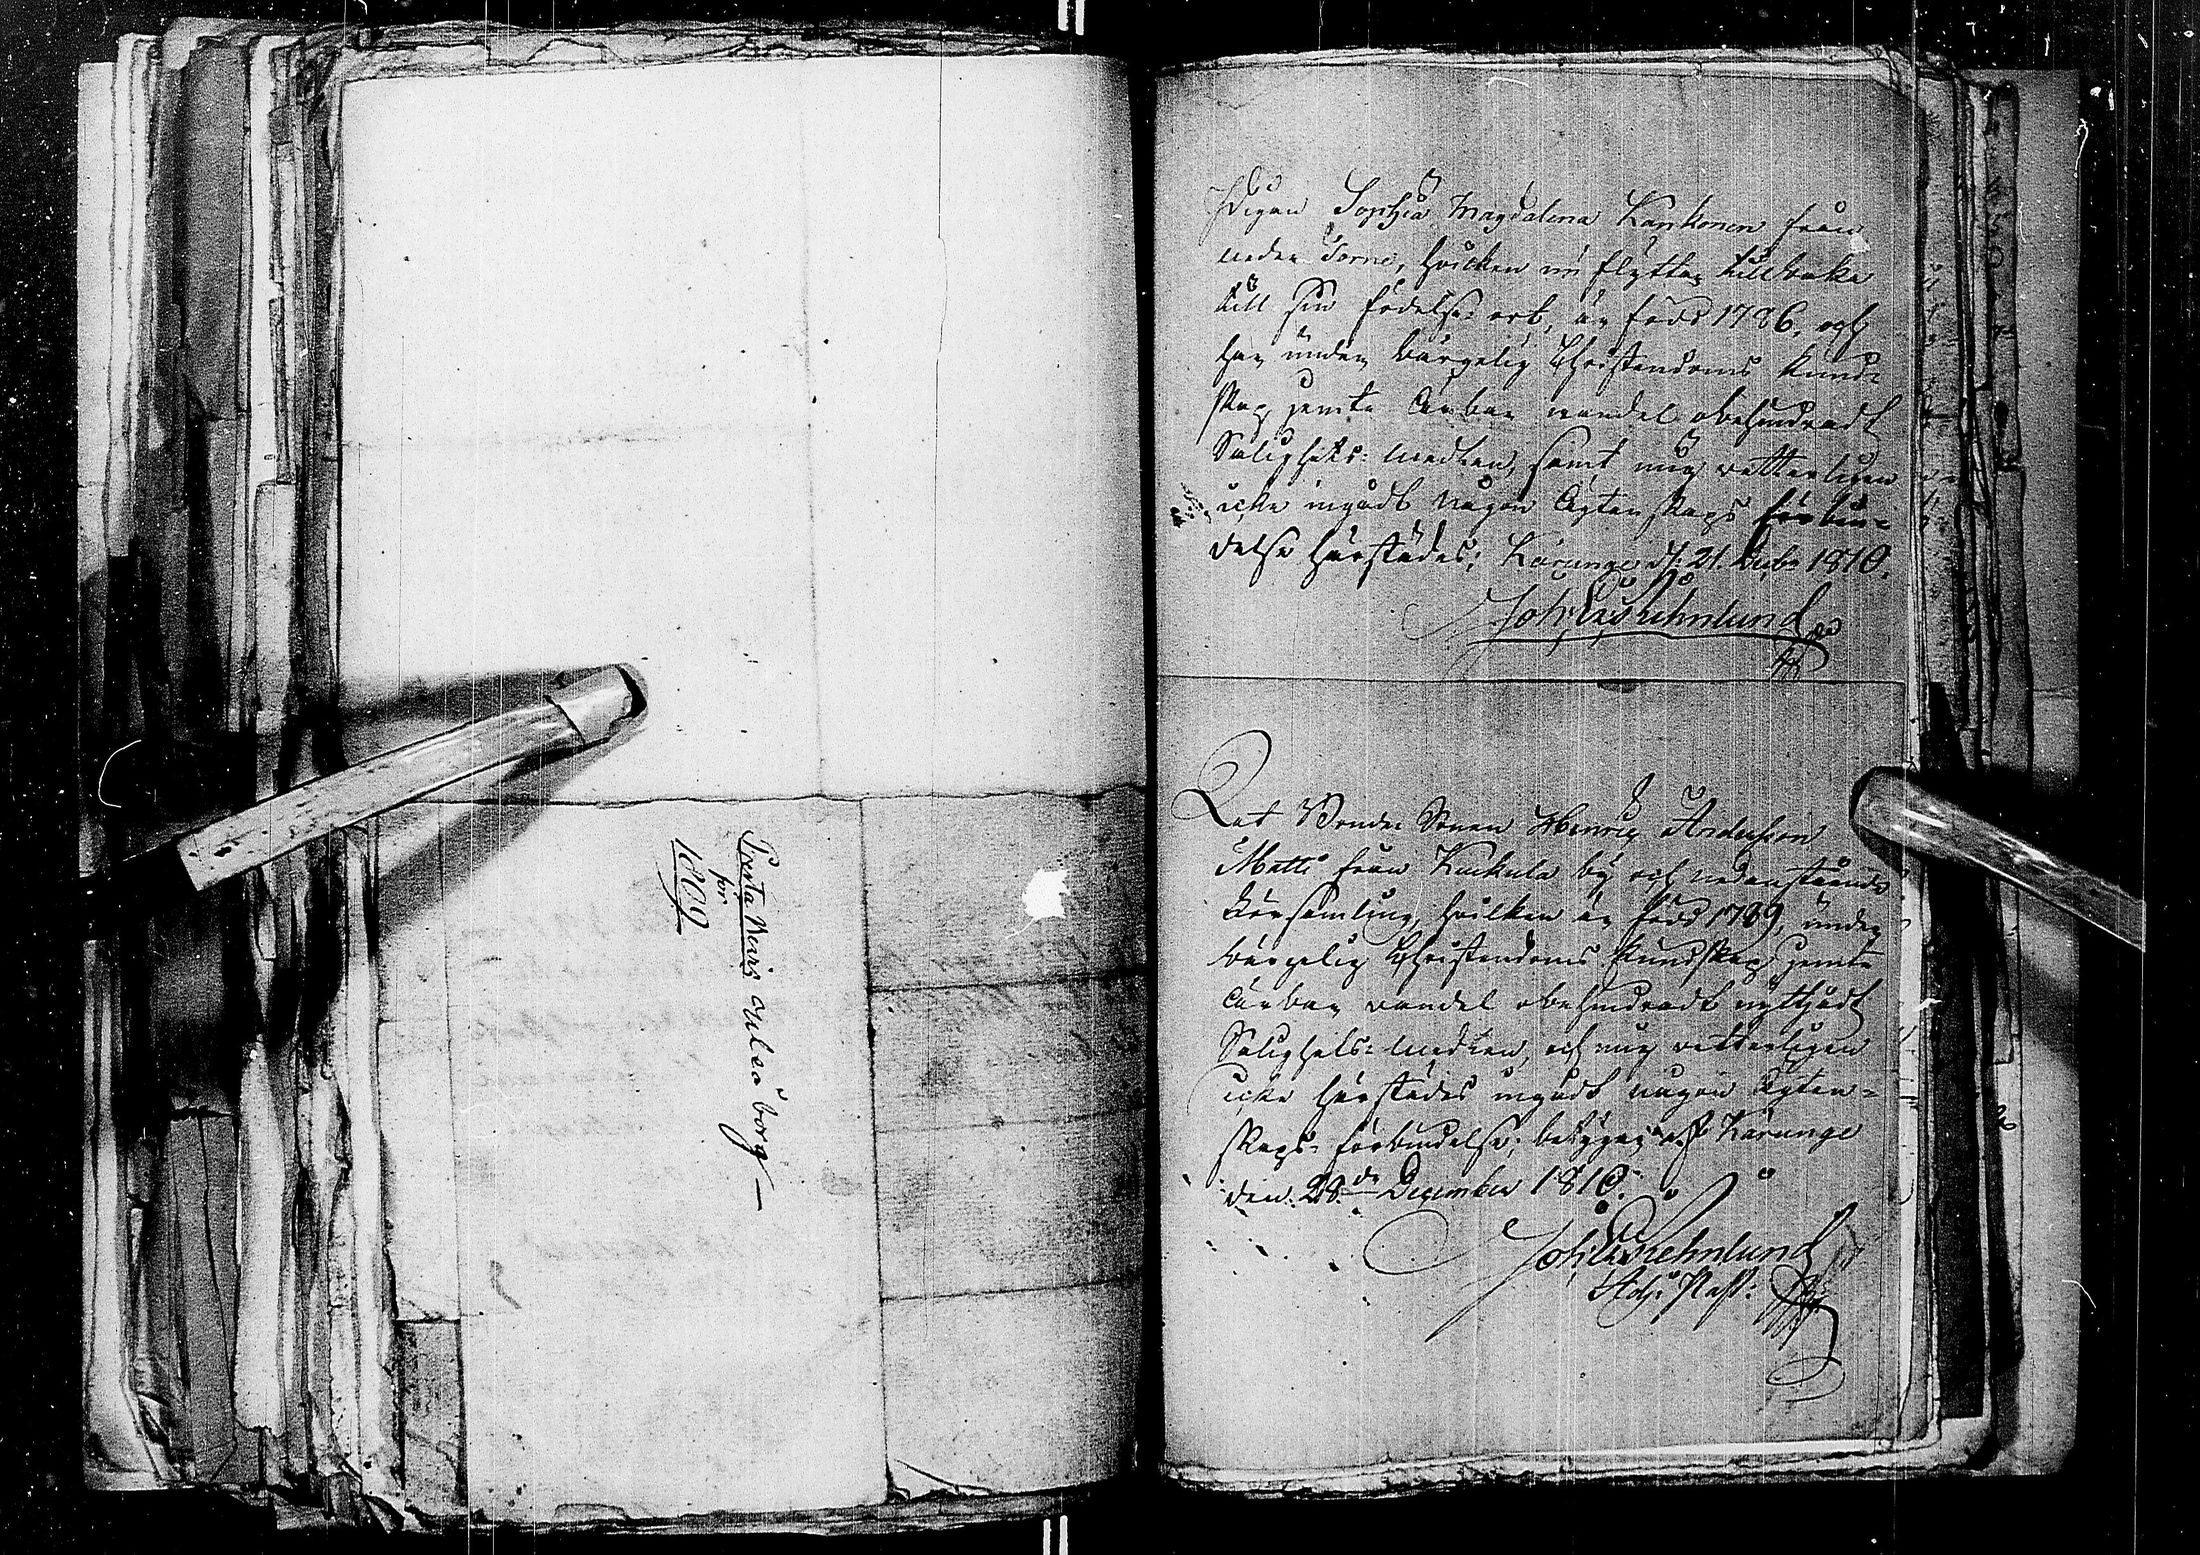 för
1809
Uleåborg —
Pigan Sophia Magdalena Kankonen från
neder Torne, hvilken nu flyttar tillbaka
till sin födelse ort, är född 1786, och
har under börgelig Christendoms kund=
skap jemte ärbar vandel obehindradt
Salighets= medlen, samt mig vetterligen
icke ingådt någon Ägtenskaps förbin=
delse härstädes; Karunge d: 21. Decbr 1810.
Joh:
Att Bonde Sonen Henric Andersson
Matti från Kuckula by och nedanstående
Församling, hvilken är född 1789, under
börgelig Christendoms kundskap jemte
ärbar vandel obehindradt nyttjadt
Salighets= medlen, och mig vetterligen
icke härstädes ingådt någon Ägten=
skaps= förbindelse; betygar af Karunge
den 28de December 1810.
Joh:
Adj: Past: